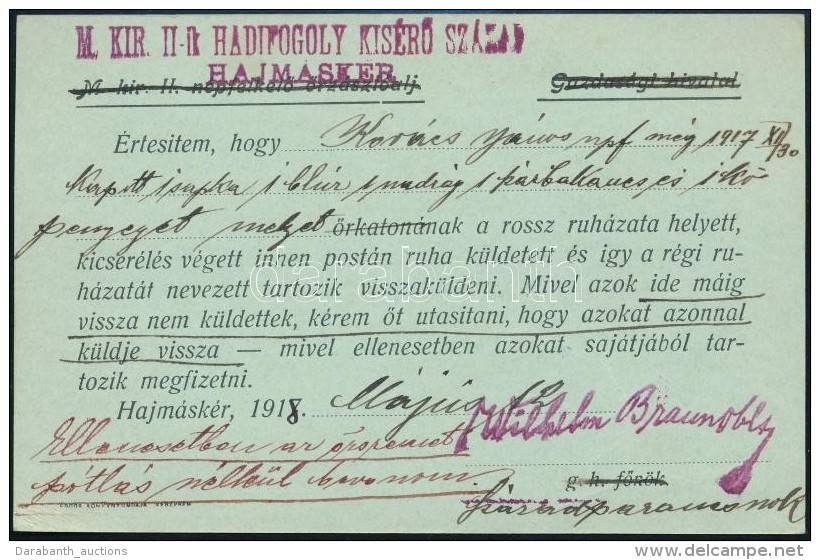 M. KIR. II-ik HADIFOGOLY KISÉRŐ SZÁZAD
HAJMÁSKÉR
M. kir. II. népfelkelő őrzászlóalj. Gazdasági hivatal
Értesitem, hogy Kovács János npf még 1917 XII/30
kapott 1 sapka 1 blúz 1 nadrág 1 pár bakkancs és 1 kö
penyeget melyet őrkatonának a rossz ruházata helyett,
kicserélés végett innen postán ruha küldetett és igy a régi ru-
házatát nevezett tartozik visszaküldeni. Mivel azok ide máig
vissza nem küldettek, kérem őt utasitani, hogy azokat azonnal
küldje vissza — mivel ellenesetben azokat sajátjából tar-
tozik megfizetni.
Hajmáskér, 1918. Május 12
Wilhelm Braun oblt
Ellenesetben az őrszemet
pótlás nélkül bevonom.
g. h. főnök.
századparancsnok
darabanth
Darabanth_auctions
delcampe.net